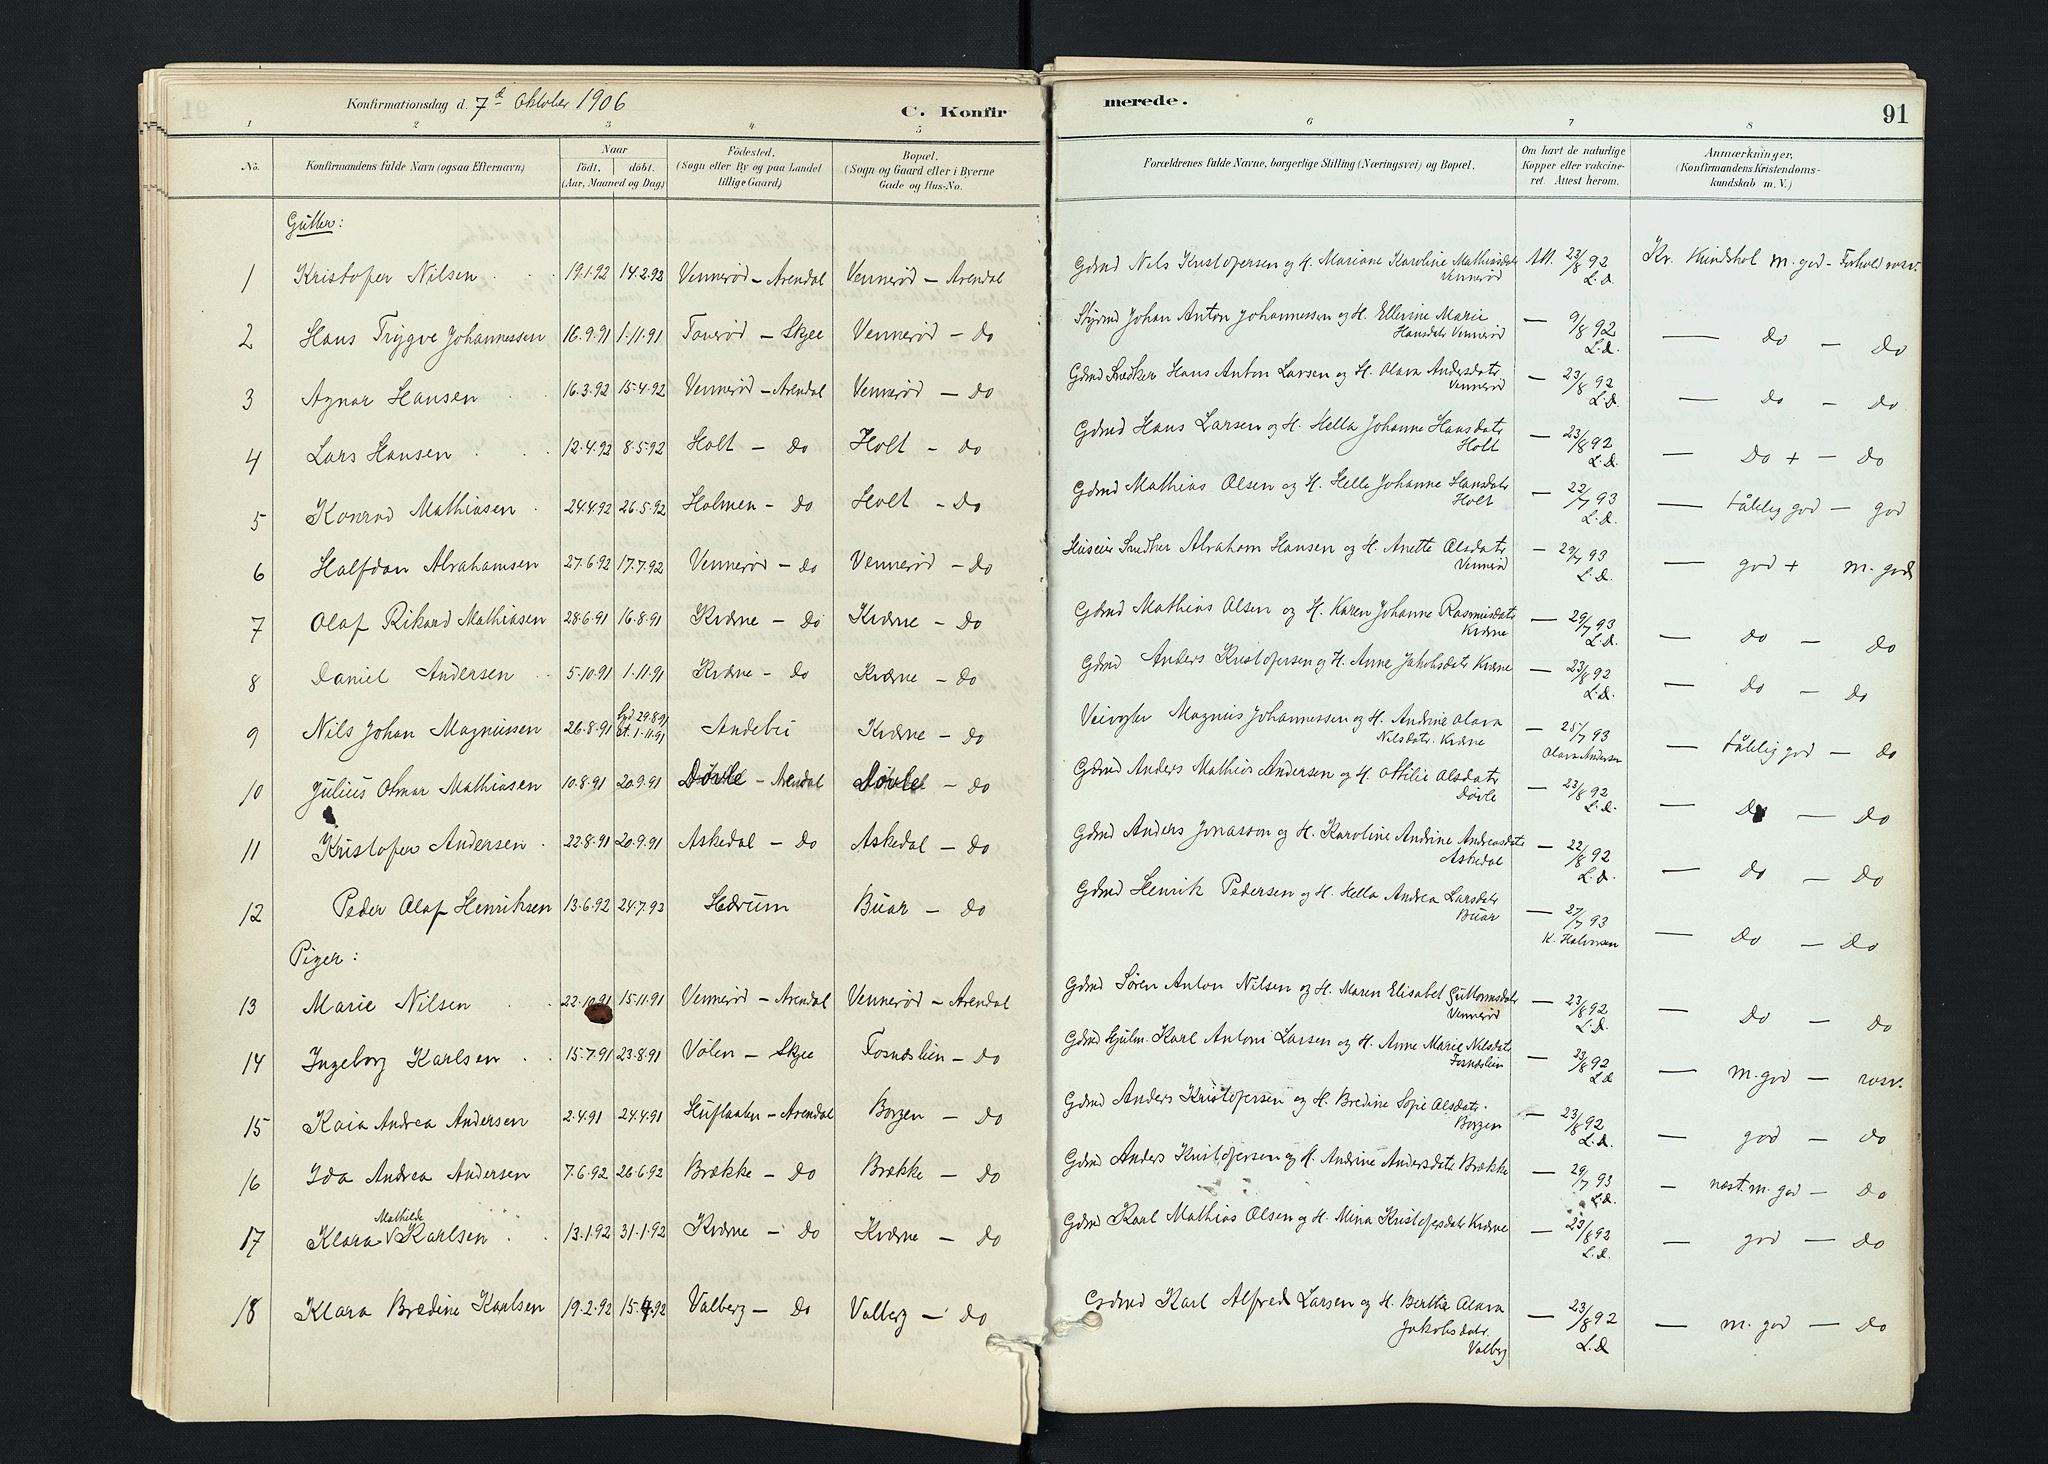 Konfirmationsdag d. 7de Oktober 1906
C. Konfirmerede.
91
1 2 3 4 5 6 7 8
No. Konfirmandens fulde Navn (ogsaa Efternavn) Naar födt. döbt. (Aar, Maaned og Dag) Födested. (Sogn eller By og paa Landet tillige Gaard) Bopæl. (Sogn og Gaard eller i Byerne Gade og Hus-No. Forældrenes fulde Navne, borgerlige Stilling (Næringsvei) og Bopæl. Om havt de naturlige Kopper eller vakcineret. Attest herom. Anmærkninger, (Konfirmandens Kristendomskundskab m. V.)
Gutter:
1 Kristofer Nilsen 19.1.92 14.2.92 Vennerød – Arendal Vennerød – Arendal Gdmd Nils Kristofersen og H. Mariane Karoline Mathisdatr Vennerød Att. 23/8 92 L.D. Kr. Kundskab m. god – Forhold rosv.
2 Hans Trygve Johannessen 16.9.91 1.11.91 – Skjee Vennerød – Do Johan Anton Johannessen og H. Ellevine Marie Hansdatr Vennerød — 9/8 92 L.D. — Do – Do
3 Agnar Hansen 16.3.92 15.4.92 Vennerød – Arendal Vennerød – Do Gdmd Snedker Hans Anton Larsen og H. Olava Andersdatr Vennerød — 23/8 92 L.D. — Do – Do
4 Lars Hansen 12.4.92 8.5.92 Holt – Do Holt – Do Gdmd Hans Larsen og H. Hella Johanne Hansdatr Holt — 23/8 92 L.D. — Do + – Do
5 Konrad Mathiasen 24.4.92 26.5.92 Holmen – Do Holt – Do Gdmd Mathias Olsen og H. Helle Johanne Hansdatr Holt — 22/7 93 L.D. — tålelig god – god
6 Halfdan Abrahamsen 27.6.92 17.7.92 Vennerød – Do Vennerød – Do Huseier Snedker Abraham Hansen og H. Anette Olsdatr Vennerød — 29/7 93 L.D. — god + m. god
7 Olaf Rikard Mathiasen 28.6.91 16.8.91 Kværne – Do Kværne – Do Gdmd Mathias Olsen og H. Karen Johanne Rasmusdatr Kværne — 29/7 93 L.D. — Do – Do
8 Daniel Andersen 5.10.91 1.11.91 Kværne – Do Kværne – Do Gdmd Anders Kristofersen og H. Anne Jakobsdatr Kværne — 23/8 92 L.D. — Do – Do
9 Nils Johan Magnussen 26.8.91 29.8.91 1.11.91 Andebu Kværne – Do Veivogter Magnus Johannessen og H. Andrine Olava Nilsdatr. Kværne — 25/7 93 Olava Andersen — tålelig god – Do
10 Julius Otmar Mathiasen 10.8.91 20.9.91 Døvle – Arendal Døvle – Do Gdmd Anders Mathias Andersen og H. Ottilie Olsdatr Døvle — 23/8 92 L.D. — Do – Do
11 Kristofer Andersen 22.8.91 20.9.91 Askedal – Do Askedal – Do Gdmd Anders Jonasson og H. Karoline Andrine Andreasdatr Askedal — 22/8 92 L.D. — Do – Do
12 Peder Olaf Henriksen 13.6.92 24.7.92 Hedrum Buar – Do Gdmd Henrik Pedersen og H. Hella Andrea Larsdatr Buar — 27/7 93 K. Halvorsen — Do – Do
Piger:
13 Marie Nilsen 22.10.91 15.11.91 Vennerød – Arendal Vennerød – Arendal Gdmd Søren Anton Nilsen og H. Maren Elisabet Guttormsdatr Vennerød — 23/8 92 L.D. — Do – Do
14 Ingeborg Karlsen 15.7.91 23.8.91 Vølen – Skjee Fosnæslien – Do Gdmd Karl Antoni Larsen og H. Anne Marie Nilsdatr Fosnæslien — 23/8 92 L.D — m. god — rosv.
15 Kaia Andrea Andersen 2.4.91 24.4.91 – Arendal Borgen – Do Gdmd Anders Kristofersen og H. Bredine Sofie Olsdatr. Borgen — 23/8 92 L.D. — god – Do
16 Ida Andrea Andersen 7.6.92 26.6.92 Brække – Do Brække – Do Gdmd Anders Kristofersen og H. Andrine Andersdatr Brække — 29/7 93 L.D. — næst. m. god – Do
17 Klara Mathilde Karlsen 13.1.92 31.1.92 Kværne – Do Kværne – Do Gdmd Karl Mathias Olsen og H. Mina Kristofersdatr Kværne — 23/8 92 L.D. — god – Do
18 Klara Bredine Karlsen 19.2.92 15.4.92 Valberg – Do Valberg – Do Gdmd Karl Alfred Larsen og H. Berthe Olava Jakobsdatr. Valberg — 23/8 92 L.D — m. god – Do